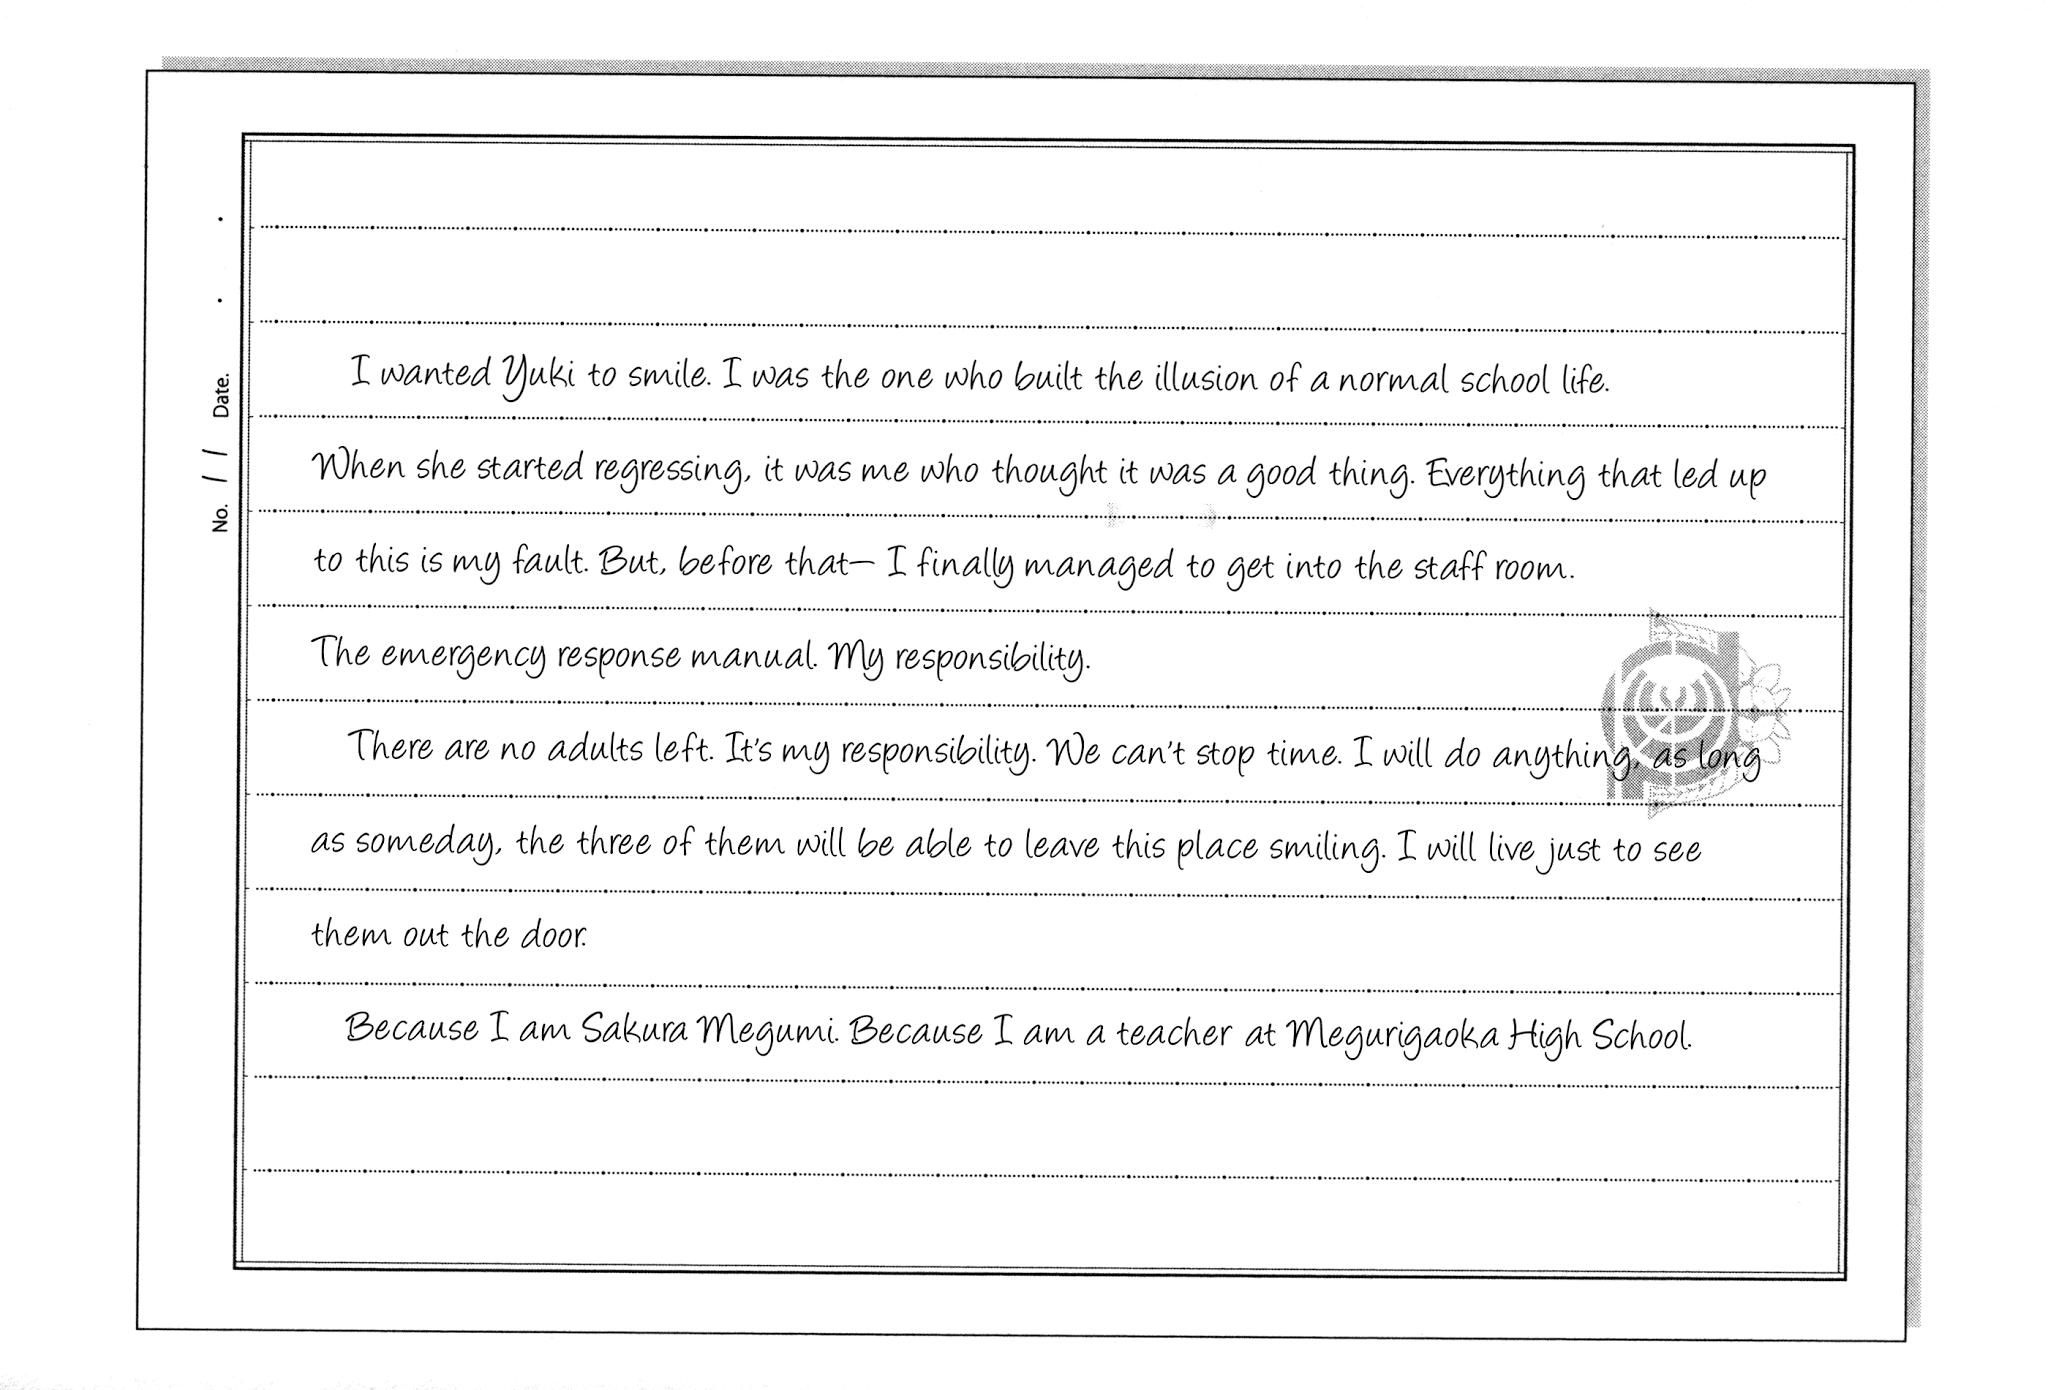 No. 11 Date. . .
I wanted Yuki to smile. I was the one who built the illusion of a normal school life.
When she started regressing, it was me who thought it was a good thing. Everything that led up
to this is my fault. But, before that— I finally managed to get into the staff room.
The emergency response manual. My responsibility.
There are no adults left. It's my responsibility. We can't stop time. I will do anything, as long
as someday, the three of them will be able to leave this place smiling. I will live just to see
them out the door.
Because I am Sakura Megumi. Because I am a teacher at Megurigaoka High School.